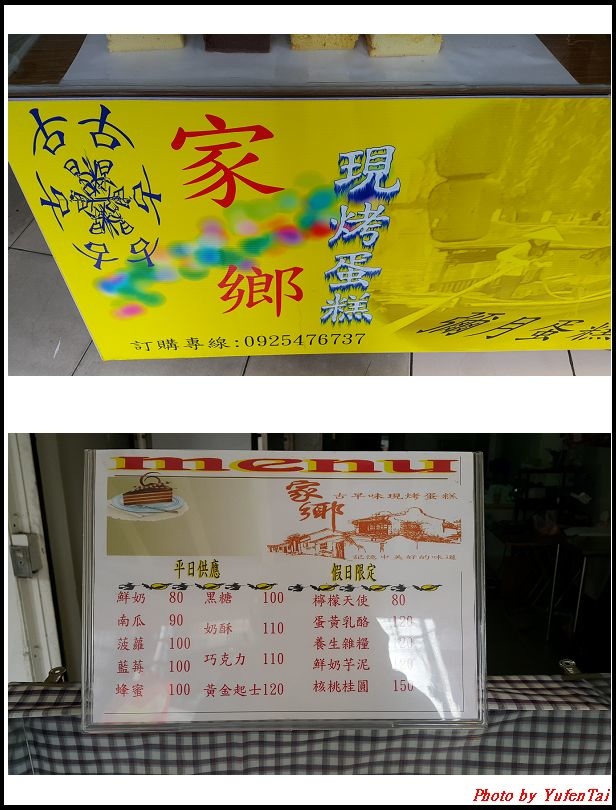 家鄉
現烤蛋糕
訂購專線:0925476737
彌月蛋糕
menu
家鄉
古早味現烤蛋糕
記憶中美好的味道
平日供應
假日限定
鮮奶 80 黑糖 100 檸檬天使 80
南瓜 90 奶酥 110 蛋黃乳酪 120
菠蘿 100 巧克力 110 養生雜糧
藍莓 100 黃金起士120 鮮奶芋泥
蜂蜜 100 核桃桂圓 150
Photo by YufenTai